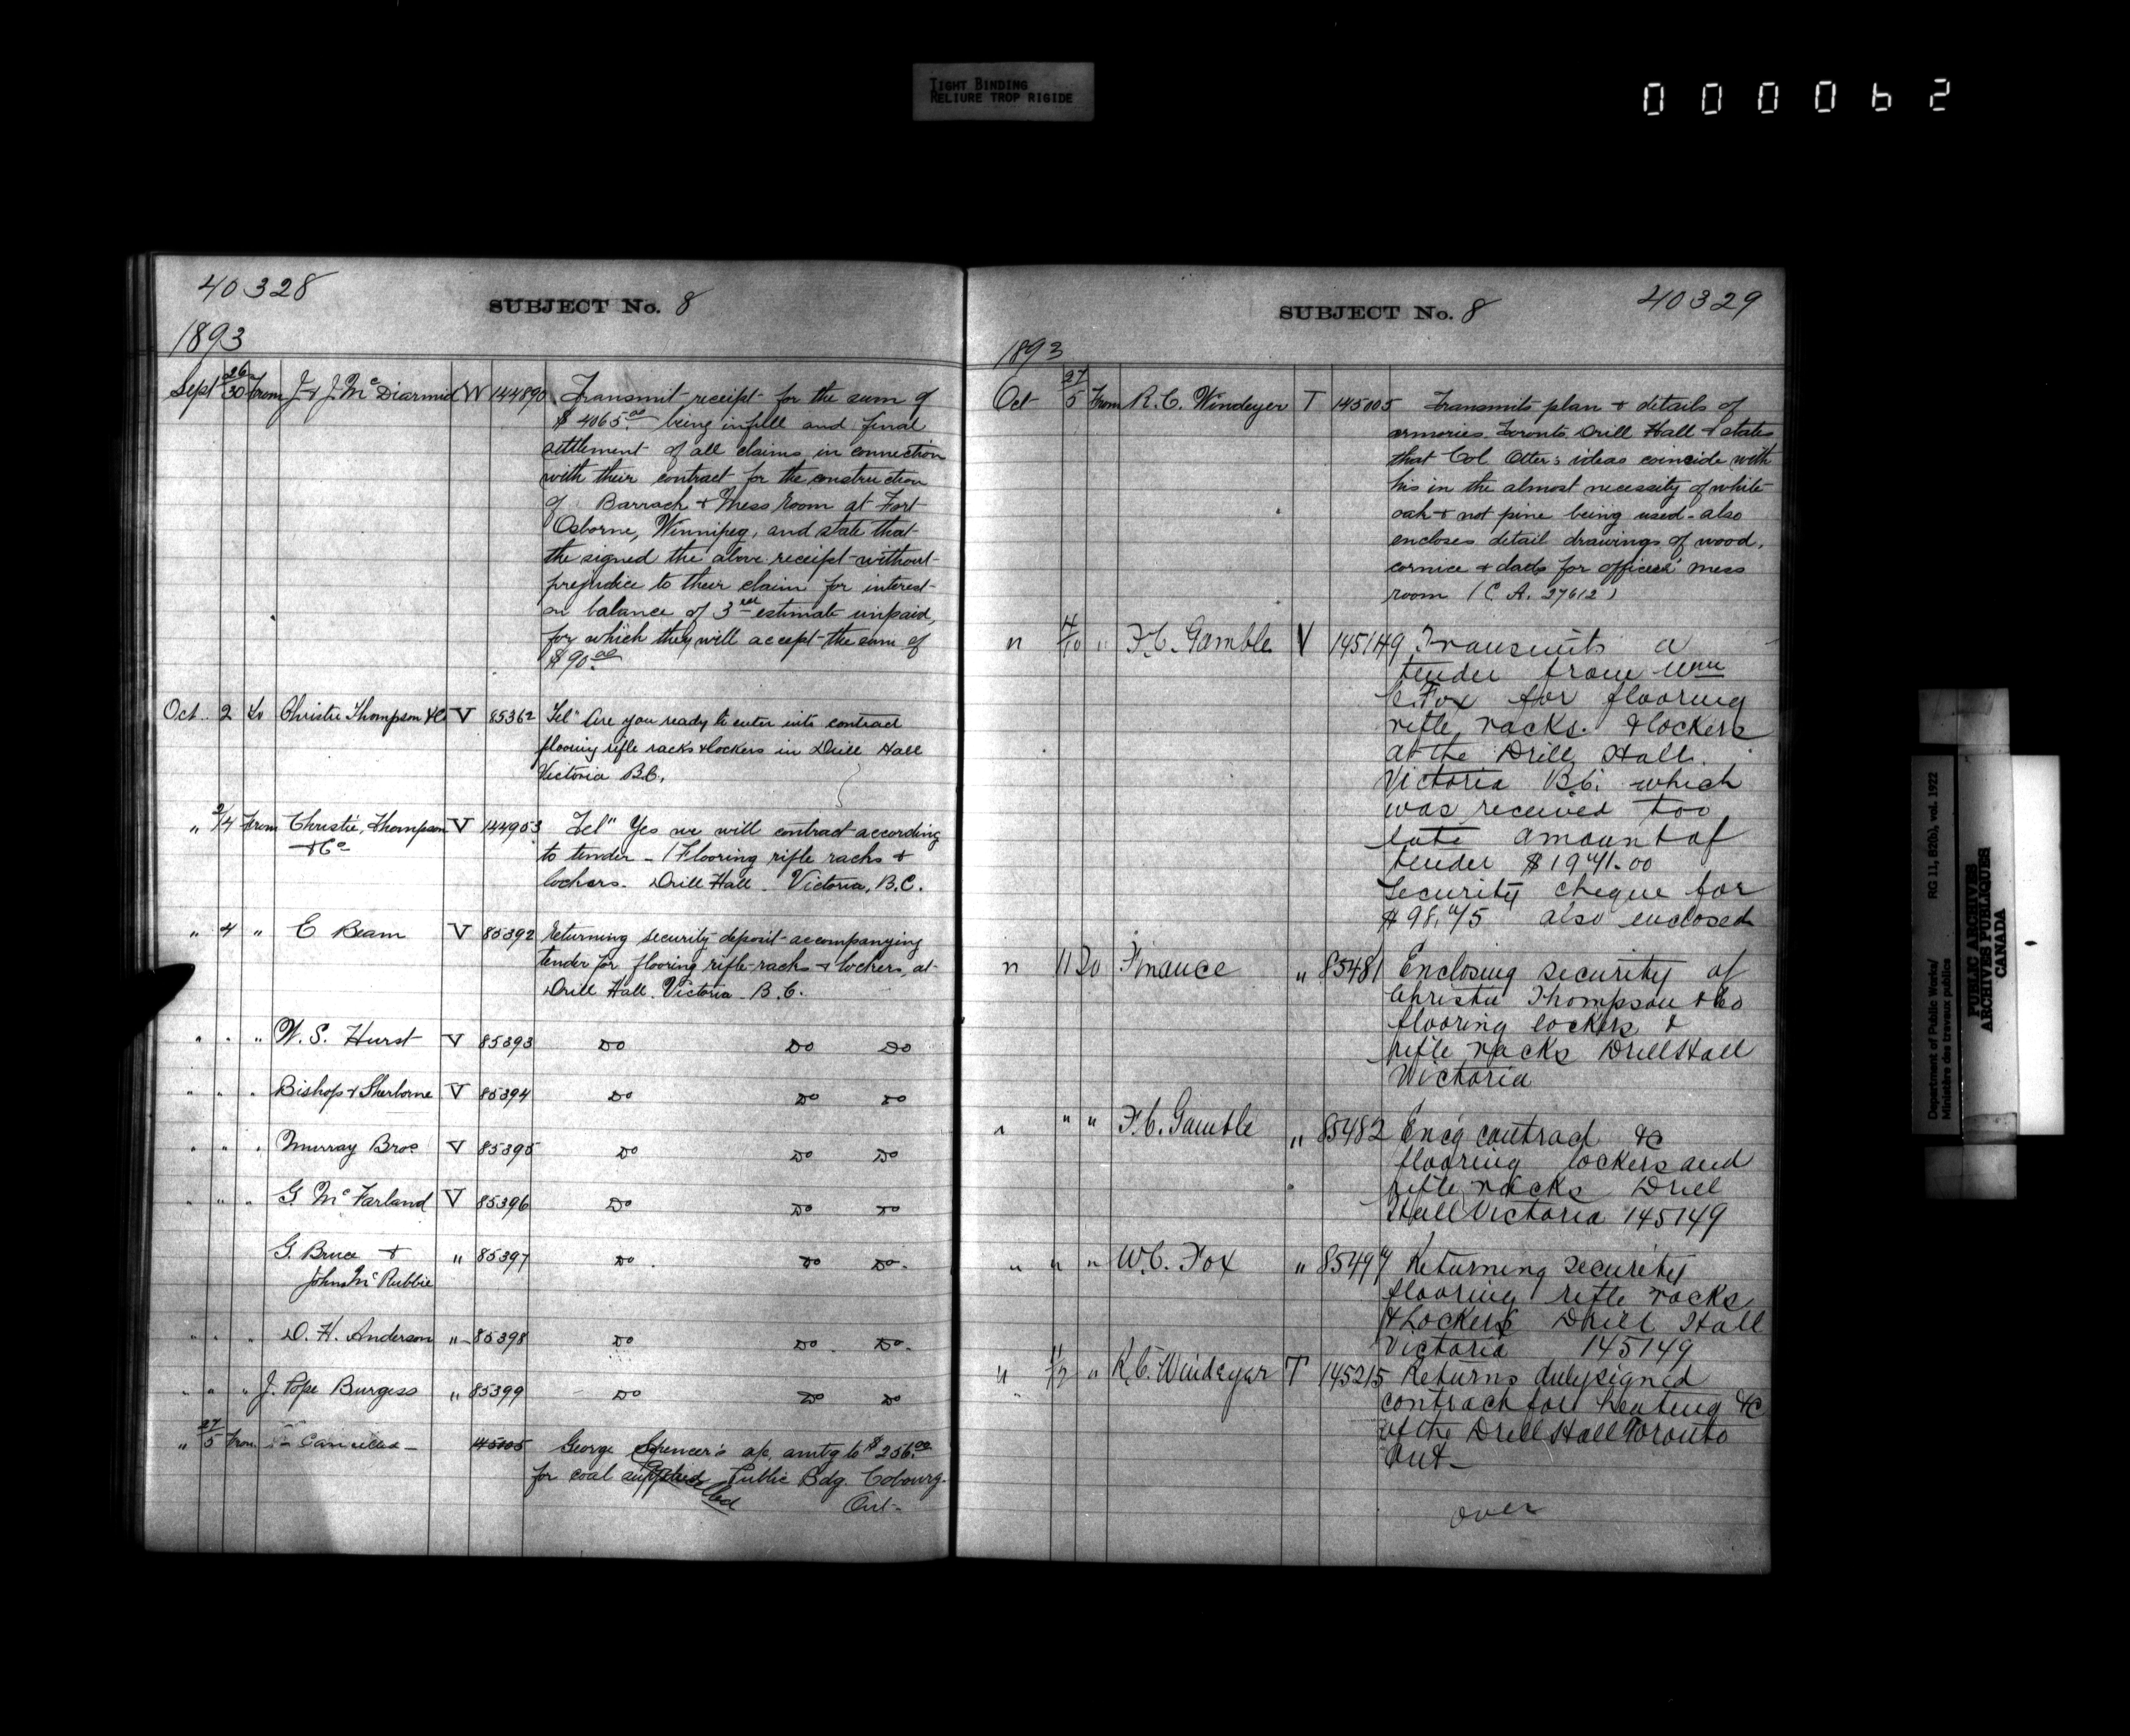 TIGHT BINDING
RELIURE TROP RIGIDE
000062
40328
SUBJECT No. 8
1893
Sept 26/30 From J. & J. McDiarmid W 144890 Transmit receipt for the sum of
$4065.00 being in full and final
settlement of all claims in connection
with their contract for the construction
of Barrack & Mess Room at Fort
Osborne, Winnipeg, and state that
the signed the above receipt without
prejudice to their claim for interest
on balance of 3rd estimate unpaid,
for which they will accept the sum of
$90.00
Oct. 2 To Christie Thompson & Co V 85362 Tel" Are you ready to enter into contract
flooring rifle racks & lockers in Drill Hall
Victoria B.C.
" 2/4 From Christie, Thompson V 144903 Tel" Yes we will contract according
& Co to tender - (Flooring rifle racks &
lockers. Drill Hall. Victoria, B.C.
" 4 " E Beam V 85392 Returning security deposit accompanying
tender for flooring rifle-racks & lockers, at
Drill Hall. Victoria. B.C.
" " " W. S. Hurst V 85393 Do Do Do
" " " Bishop & Sherborne V 85394 Do Do Do
" " " Murray Bros V 85395 Do Do Do
" " " G. McFarland V 85396 Do Do Do
G. Bruce & " 85397 Do Do Do
John Mc Rubbie
" " " D. H. Anderson " 85398 Do Do Do
" " " J. Pope Burgess " 85399 Do Do Do
" 27/5 From Cancelled 145005 George Spencer's a/c amtg to $256.00
for coal supplied Public Bdg. Cobourg.
Ont.
SUBJECT No. 8
40329
1893
Oct 27/5 From R. C. Windeyer T 145005 Transmits plan & details of
armories Toronto Drill Hall & states
that Col Otter's ideas coincide with
his in the almost necessity of white
oak & not pine being used - also
encloses detail drawings of wood,
cornice & dado for officers' mess
room (C A. 27612)
" 4/10 " F. C. Gamble V 145149 Transmits a
tender from Wm
C. Fox for flooring
rifle racks. & lockers
at the Drill Hall.
Victoria B.C. which
was received too
late amount of
tender $1941.00
Security cheque for
$98.45 also enclosed
" 11 To Finance " 85481 Enclosing security of
Christie Thompson & Co
flooring lockers &
rifle racks Drill Hall
Victoria
" " " F. C. Gamble " 85482 Encg contract &c
flooring lockers and
rifle racks Drill
Hall Victoria 145149
" " " W. C. Fox " 85494 Returning security
flooring rifle racks
& Lockers Drill Hall
Victoria 145149
" 11/12 " R. C. Windeyer T 145215 Returns duly signed
contract for heating &c
of the Drill Hall Toronto
Ont
over
Department of Public Works/ RG 11, B2(a), vol. 1922
Ministère des travaux publics
PUBLIC ARCHIVES
ARCHIVES PUBLIQUES
CANADA